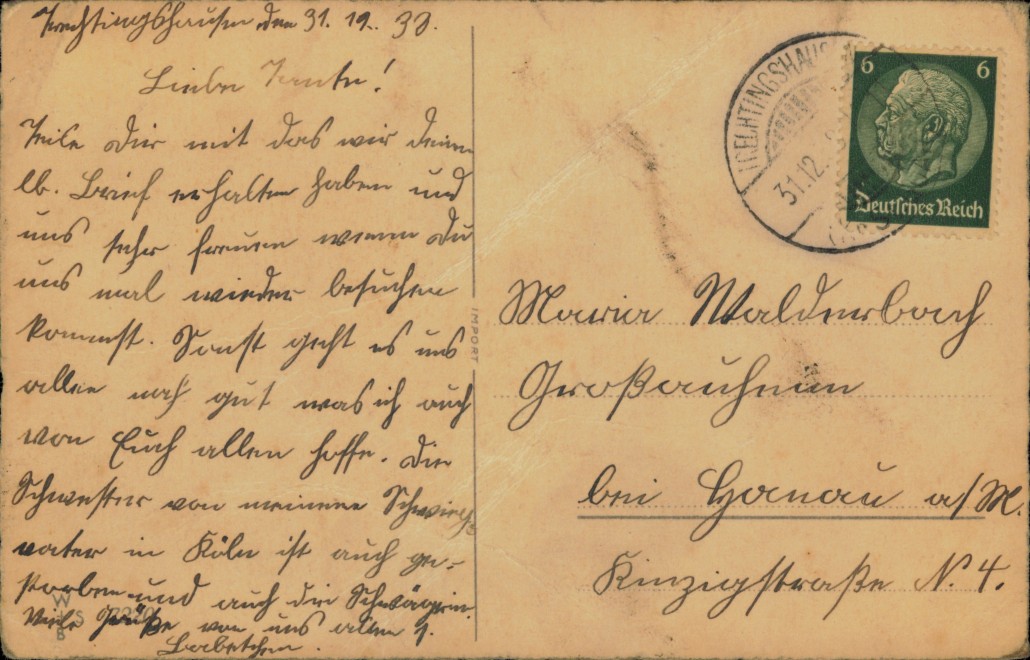 Trechtingshausen den 31. 12. 33.
Liebe Tante!
Teile Dir mit das wir deinen
lb. Brief erhalten haben und
uns sehr freuen wenn Du
uns mal wieder besuchen
kommst. Sonst geht es uns
allen noch gut was ich auch
von Euch allen hoffe. Die
Schwester von meinem Schwieger
vater in Köln ist auch ge-
storben und auch die Schwägerin.
Viele Grüße von uns allen
Babettchen.
IMPORT
W S
B
TRECHTINGSHAUSEN
31.12.
6 6
Deutsches Reich
Maria Walderbach
Großauheim
bei Hanau a/M.
Kinzigstraße N. 4.